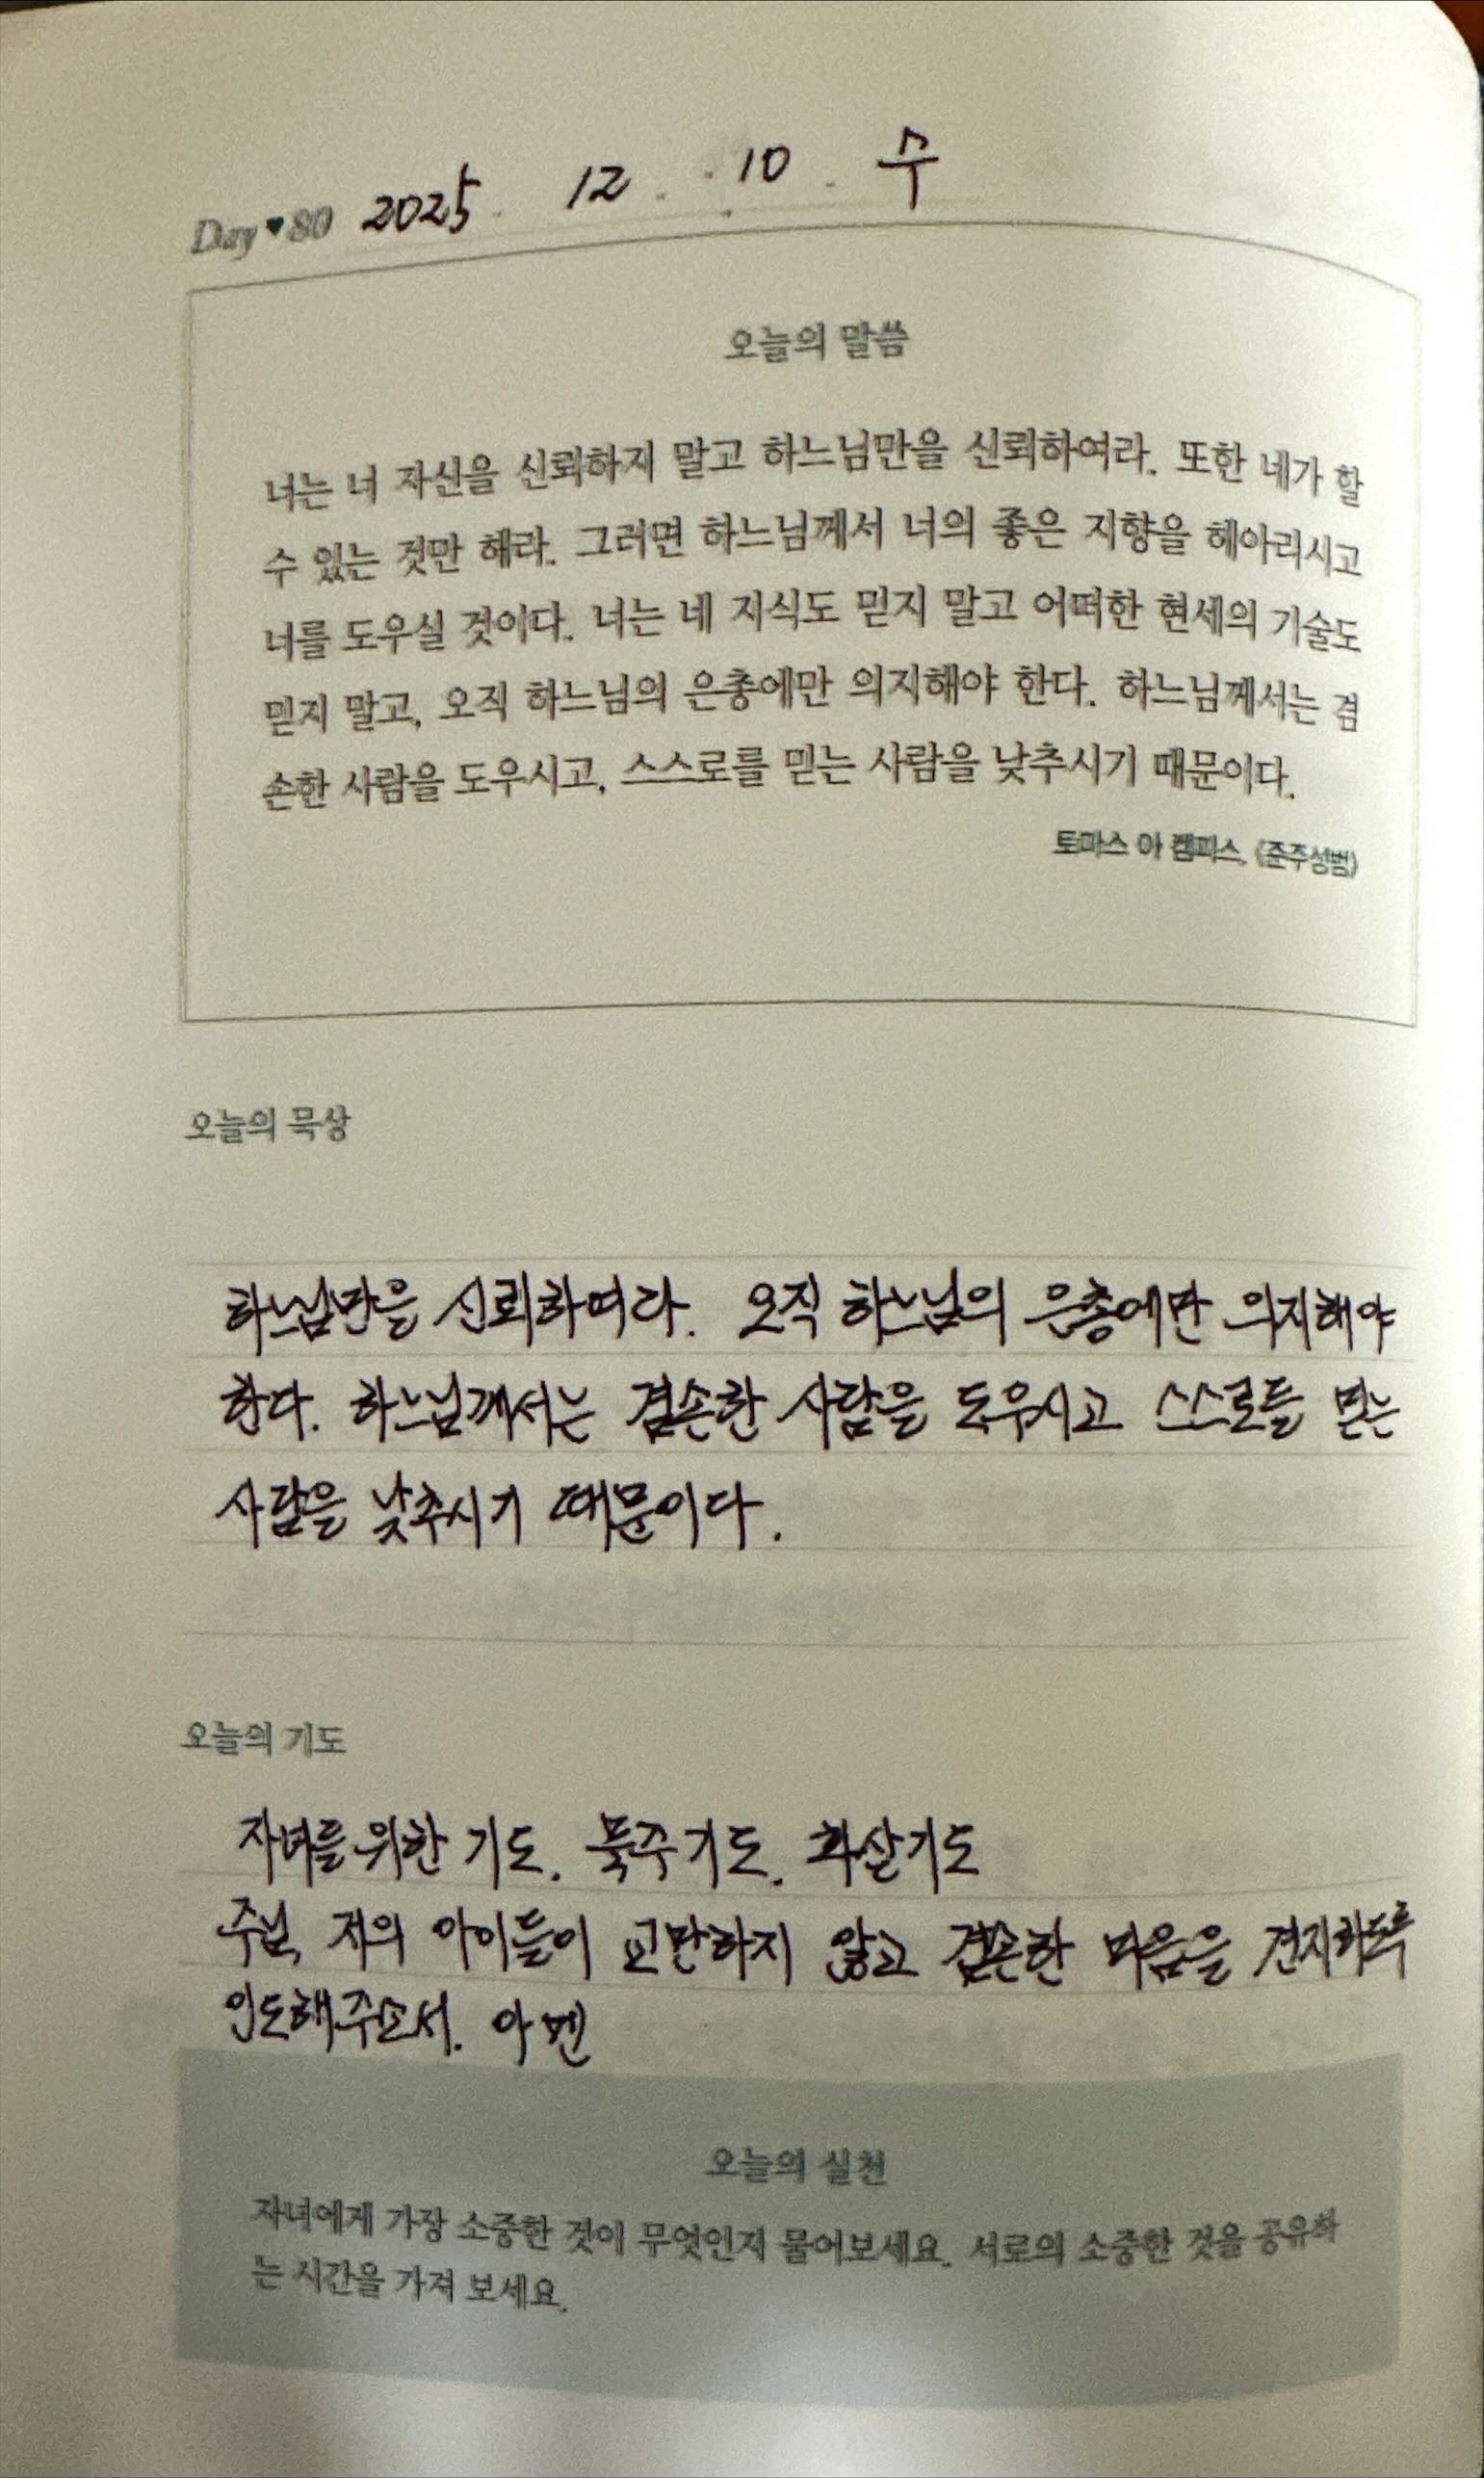 Day ♥ 80 2025. 12. 10. 수
오늘의 말씀
너는 너 자신을 신뢰하지 말고 하느님만을 신뢰하여라. 또한 네가 할
수 있는 것만 해라. 그러면 하느님께서 너의 좋은 지향을 헤아리시고
너를 도우실 것이다. 너는 네 지식도 믿지 말고 어떠한 현세의 기술도
믿지 말고, 오직 하느님의 은총에만 의지해야 한다. 하느님께서는 겸
손한 사람을 도우시고, 스스로를 믿는 사람을 낮추시기 때문이다.
토마스 아 켐피스, 《준주성범》
오늘의 묵상
하느님만을 신뢰하여라. 오직 하느님의 은총에만 의지해야
한다. 하느님께서는 겸손한 사람을 도우시고 스스로를 믿는
사람을 낮추시기 때문이다.
오늘의 기도
자녀를 위한 기도. 묵주기도. 화살기도
주님, 저의 아이들이 교만하지 않고 겸손한 마음을 견지하도록
인도해주소서. 아멘
오늘의 실천
자녀에게 가장 소중한 것이 무엇인지 물어보세요. 서로의 소중한 것을 공유하
는 시간을 가져 보세요.